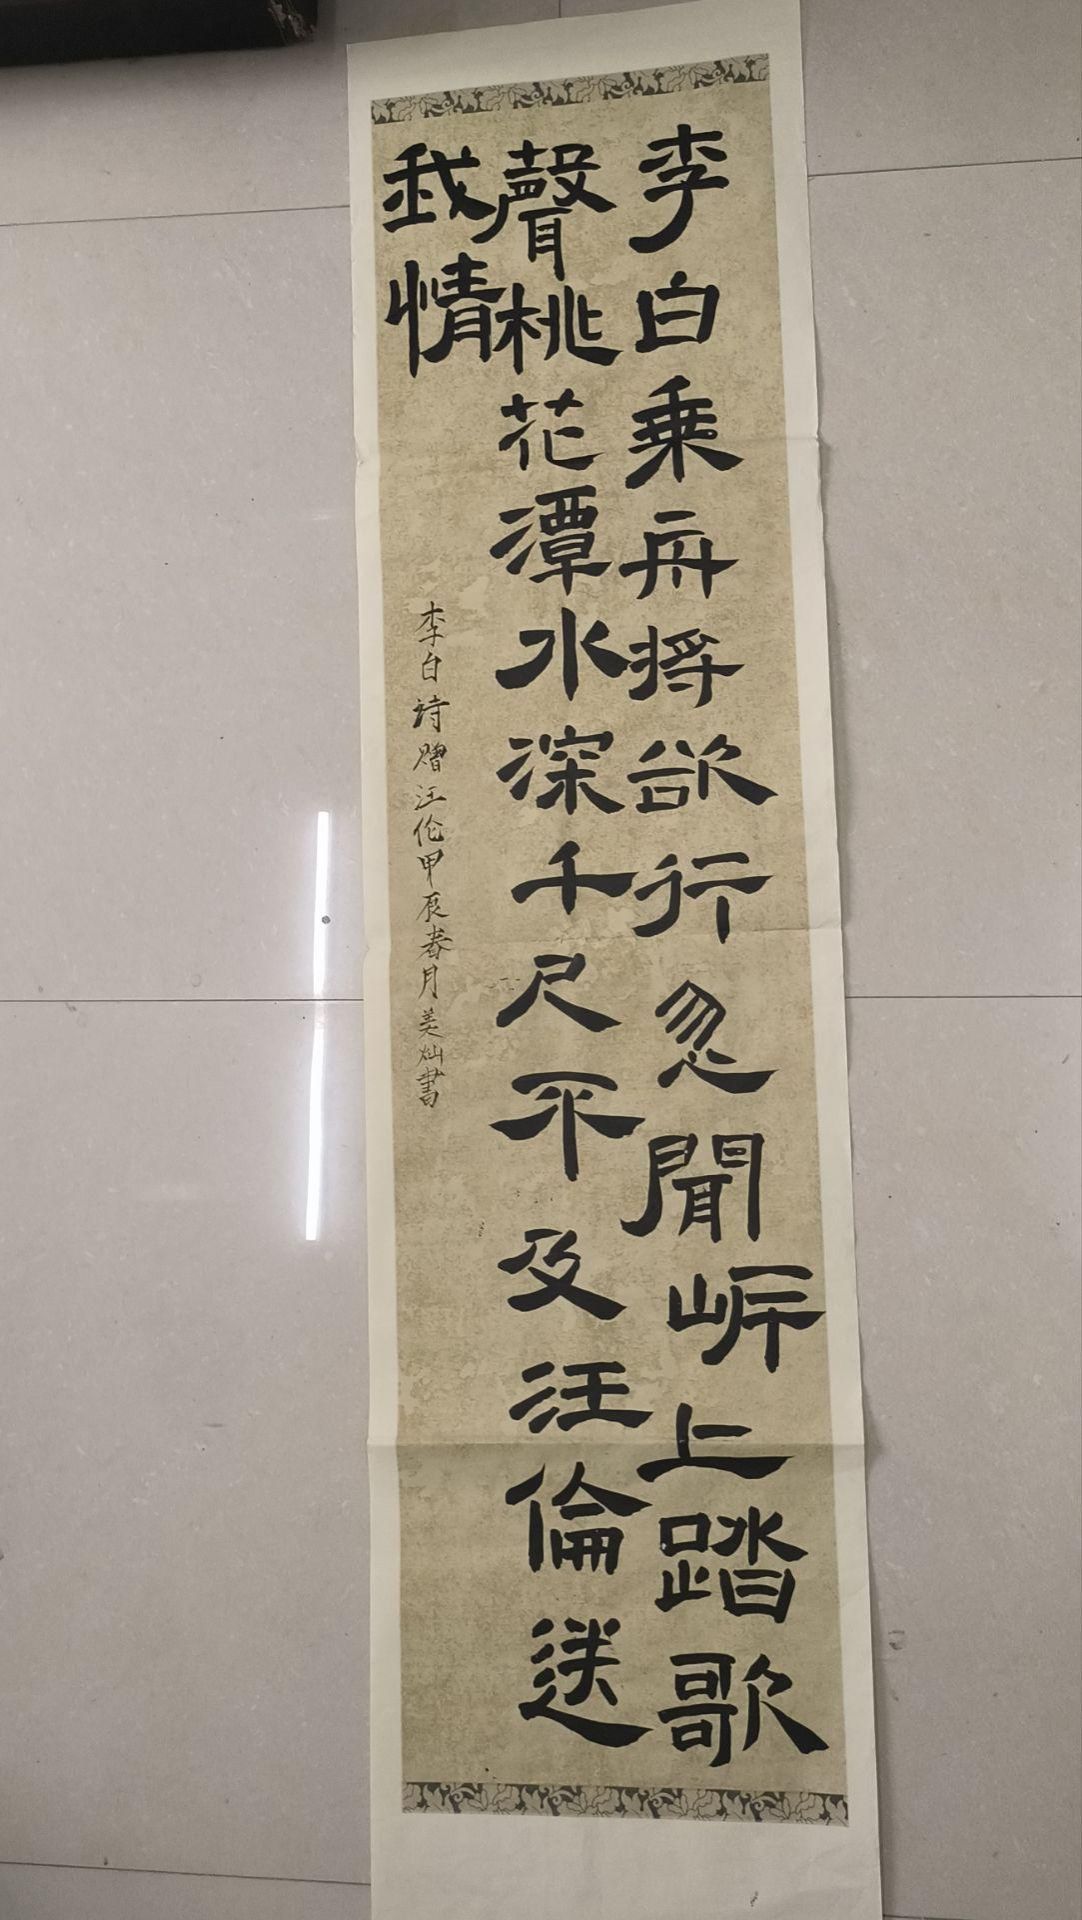 李白乗舟將欲行忽聞岍上踏歌
聲桃花潭水深千尺不及汪倫送
我情
李白诗赠汪伦甲辰春月美灿書